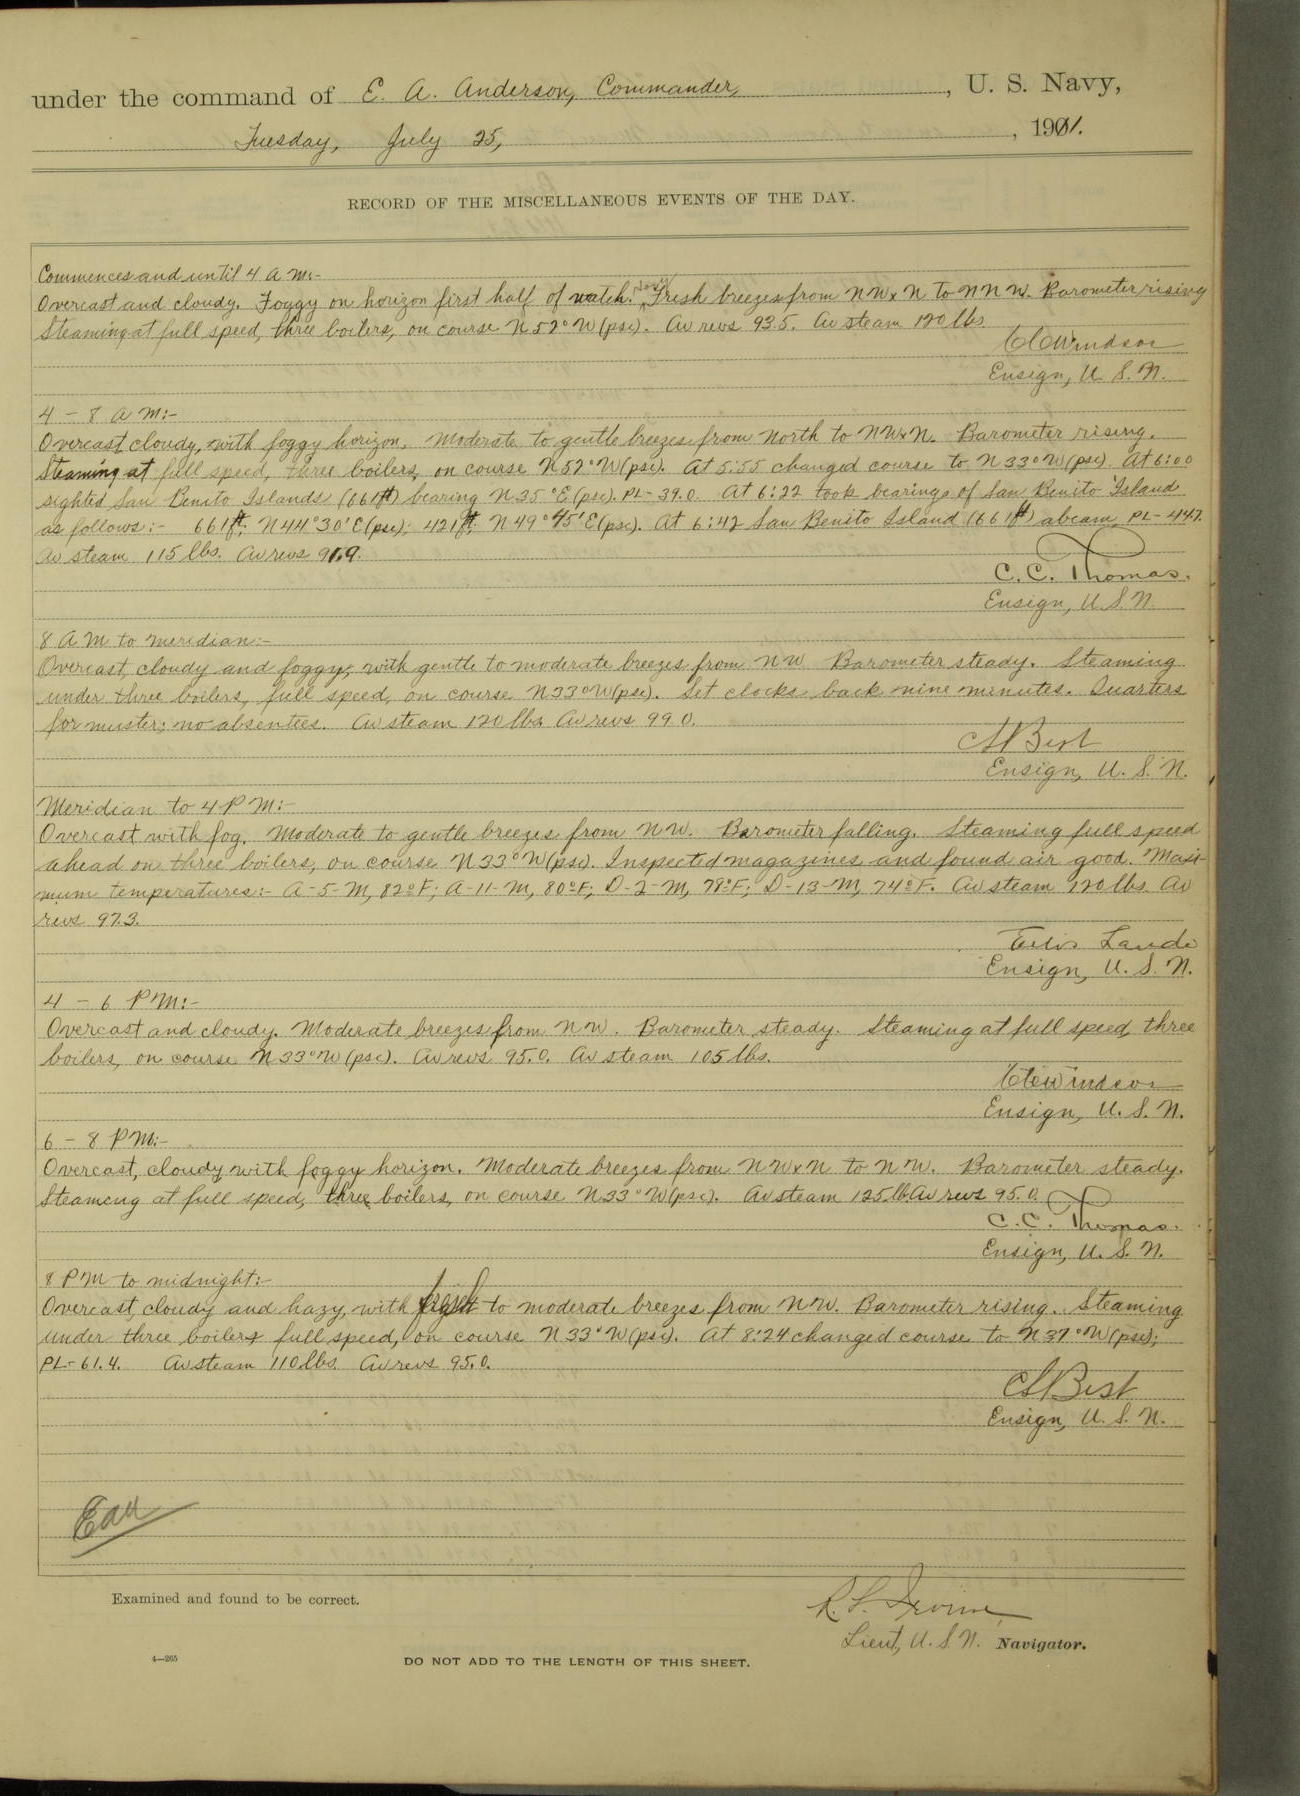 under the command of E. A. Anderson, Commander, , U. S. Navy,
Tuesday, July 25, , 1911.
RECORD OF THE MISCELLANEOUS EVENTS OF THE DAY.
Commences and until 4 A M:-
Overcast and cloudy. Foggy on horizon first half of watch. Fresh breezes from NWxN to NNW. Barometer rising
Steaming at full speed, three boilers, on course N 52° W (psc). Av revs 93.5. Av steam 120 lbs.
Windsor
Ensign, U. S. N.
4 - 8 A M:-
Overcast, cloudy, with foggy horizon. Moderate to gentle breezes from North to NWxN. Barometer rising.
Steaming at full speed, three boilers, on course N 52° W (psc). At 5:55 changed course to N 33° W (psc). At 6:00
sighted San Benito Islands (661 ft) bearing N 35° E (psc). PL- 39.0 At 6:22 took bearings of San Benito Island
as follows:- 661 ft; N 44° 30' E (psc); 421 ft; N 49° 45' E (psc). At 6:42 San Benito Island (661 ft) abeam, PL- 44.7.
Av steam 115 lbs. Av revs 91.9.
C. C. Thomas.
Ensign, U. S. N.
8 A M to meridian:-
Overcast, cloudy and foggy, with gentle to moderate breezes from NW Barometer steady. Steaming
under three boilers, full speed, on course N 33° W (psc). Set clocks back nine minutes. Quarters
for muster; no absentees. Av steam 120 lbs Av revs 99.0.
Best
Ensign, U. S. N.
Meridian to 4 P M:-
Overcast with fog. Moderate to gentle breezes from NW. Barometer falling. Steaming full speed
ahead on three boilers, on course N 33° W (psc). Inspected magazines and found air good. Maxi-
mum temperatures:- A-5-M, 82° F; A-11-M, 80° F; D-2-M, 78° F; D-13-M, 74° F. Av steam 120 lbs. Av
revs 97.3.
Ellis Lando
Ensign, U. S. N.
4 - 6 P M:-
Overcast and cloudy. Moderate breezes from NW. Barometer steady. Steaming at full speed, three
boilers, on course N 33° W (psc). Av revs 95.0. Av steam 105 lbs.
Windsor
Ensign, U. S. N.
6 - 8 P M:-
Overcast, cloudy with foggy horizon. Moderate breezes from NWxN to NW. Barometer steady.
Steaming at full speed, three boilers, on course N 33° W (psc). Av steam 125 lb. Av revs 95.0.
C. C. Thomas.
Ensign, U. S. N.
8 P M to midnight:-
Overcast, cloudy and hazy, with fresh to moderate breezes from NW. Barometer rising. Steaming
under three boilers full speed, on course N 33° W (psc). At 8:24 changed course to N 37° W (psc);
PL- 61.4. Av steam 110 lbs Av revs 95.0.
Best
Ensign, U. S. N.
Examined and found to be correct.
R. L. Irvine,
Lieut, U. S. N. Navigator.
4—265
DO NOT ADD TO THE LENGTH OF THIS SHEET.